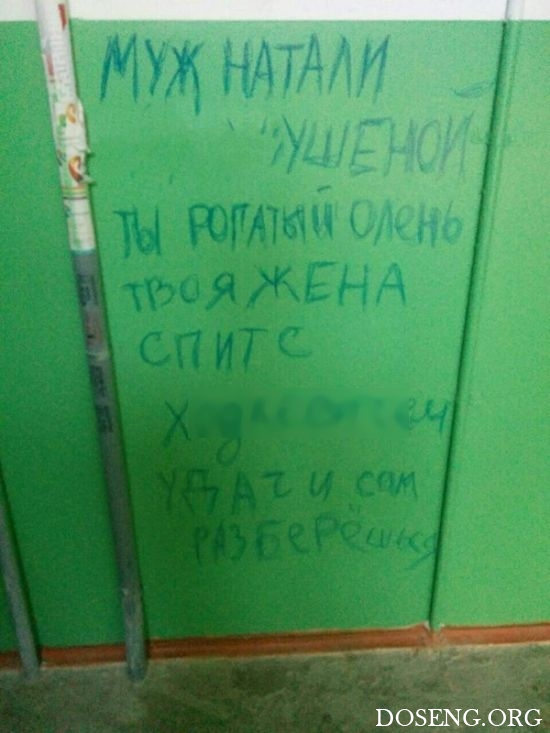 МУЖ НАТАЛИ
ТЫ РОГАТЫЙ ОЛЕНЬ
ТВОЯ ЖЕНА
СПИТ С
УДАЧИ САМ
РАЗБЕРЁШЬСЯ
DOSENG.ORG